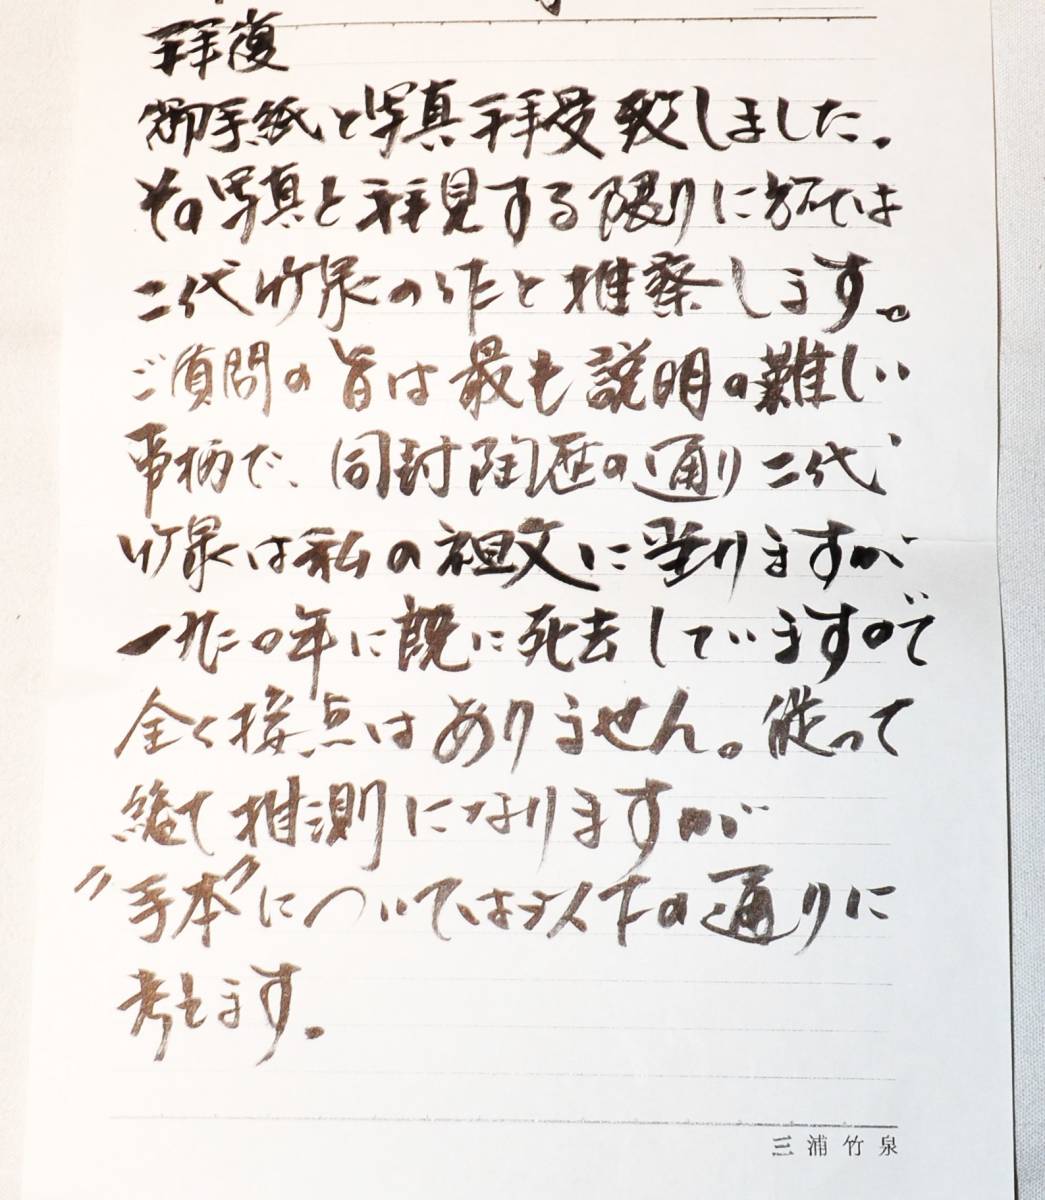 拝復
御手紙と写真拝受致しました。
その写真を拝見する限りに於ては
二代竹泉の作と推察します。
ご質問の旨は最も説明の難しい
事柄で、同封陶歴の通り二代
竹泉は私の祖父に当りますが
一九二〇年に既に死去していますので
全く接点はありません。従って
総て推測になりますが
"手本"については以下の通りに
考えます。
三浦竹泉